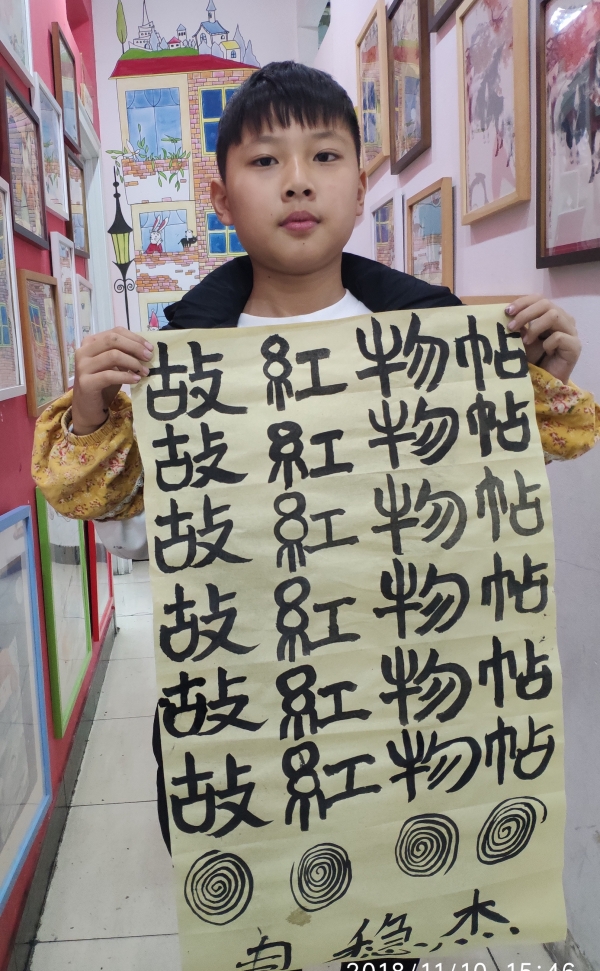 故紅物帖
故紅物帖
故紅物帖
故紅物帖
故紅物帖
故紅物帖
稳杰
2018/11/10 15:46